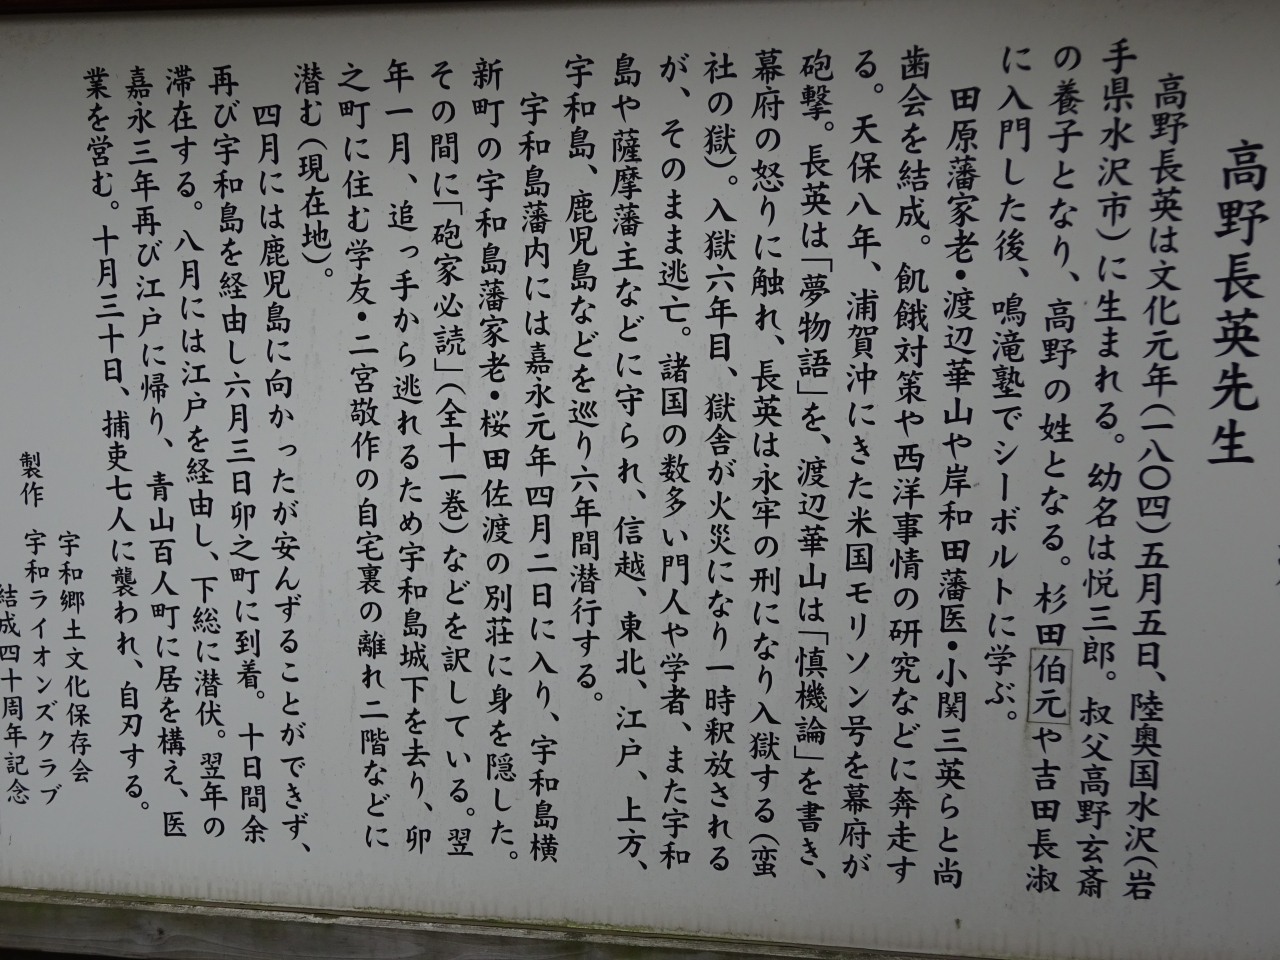 高野長英先生
高野長英は文化元年(一八〇四)五月五日、陸奥国水沢(岩
手県水沢市)に生まれる。幼名は悦三郎。叔父高野玄斎
の養子となり、高野の姓となる。杉田伯元や吉田長淑
に入門した後、鳴滝塾でシーボルトに学ぶ。
田原藩家老・渡辺華山や岸和田藩医・小関三英らと尚
歯会を結成。飢餓対策や西洋事情の研究などに奔走す
る。天保八年、浦賀沖にきた米国モリソン号を幕府が
砲撃。長英は「夢物語」を、渡辺華山は「慎機論」を書き、
幕府の怒りに触れ、長英は永牢の刑になり入獄する(蛮
社の獄)。入獄六年目、獄舎が火災になり一時釈放される
が、そのまま逃亡。諸国の数多い門人や学者、また宇和
島や薩摩藩主などに守られ、信越、東北、江戸、上方、
宇和島、鹿児島などを巡り六年間潜行する。
宇和島藩内には嘉永元年四月二日に入り、宇和島横
新町の宇和島藩家老・桜田佐渡の別荘に身を隠した。
その間に「砲家必読」(全十一巻)などを訳している。翌
年一月、追っ手から逃れるため宇和島城下を去り、卯
之町に住む学友・二宮敬作の自宅裏の離れ二階などに
潜む(現在地)。
四月には鹿児島に向かったが安んずることができず、
再び宇和島を経由し六月三日卯之町に到着。十日間余
滞在する。八月には江戸を経由し、下総に潜伏。翌年の
嘉永三年再び江戸に帰り、青山百人町に居を構え、医
業を営む。十月三十日、捕吏七人に襲われ、自刃する。
宇和郷土文化保存会
製作 宇和ライオンズクラブ
結成四十周年記念